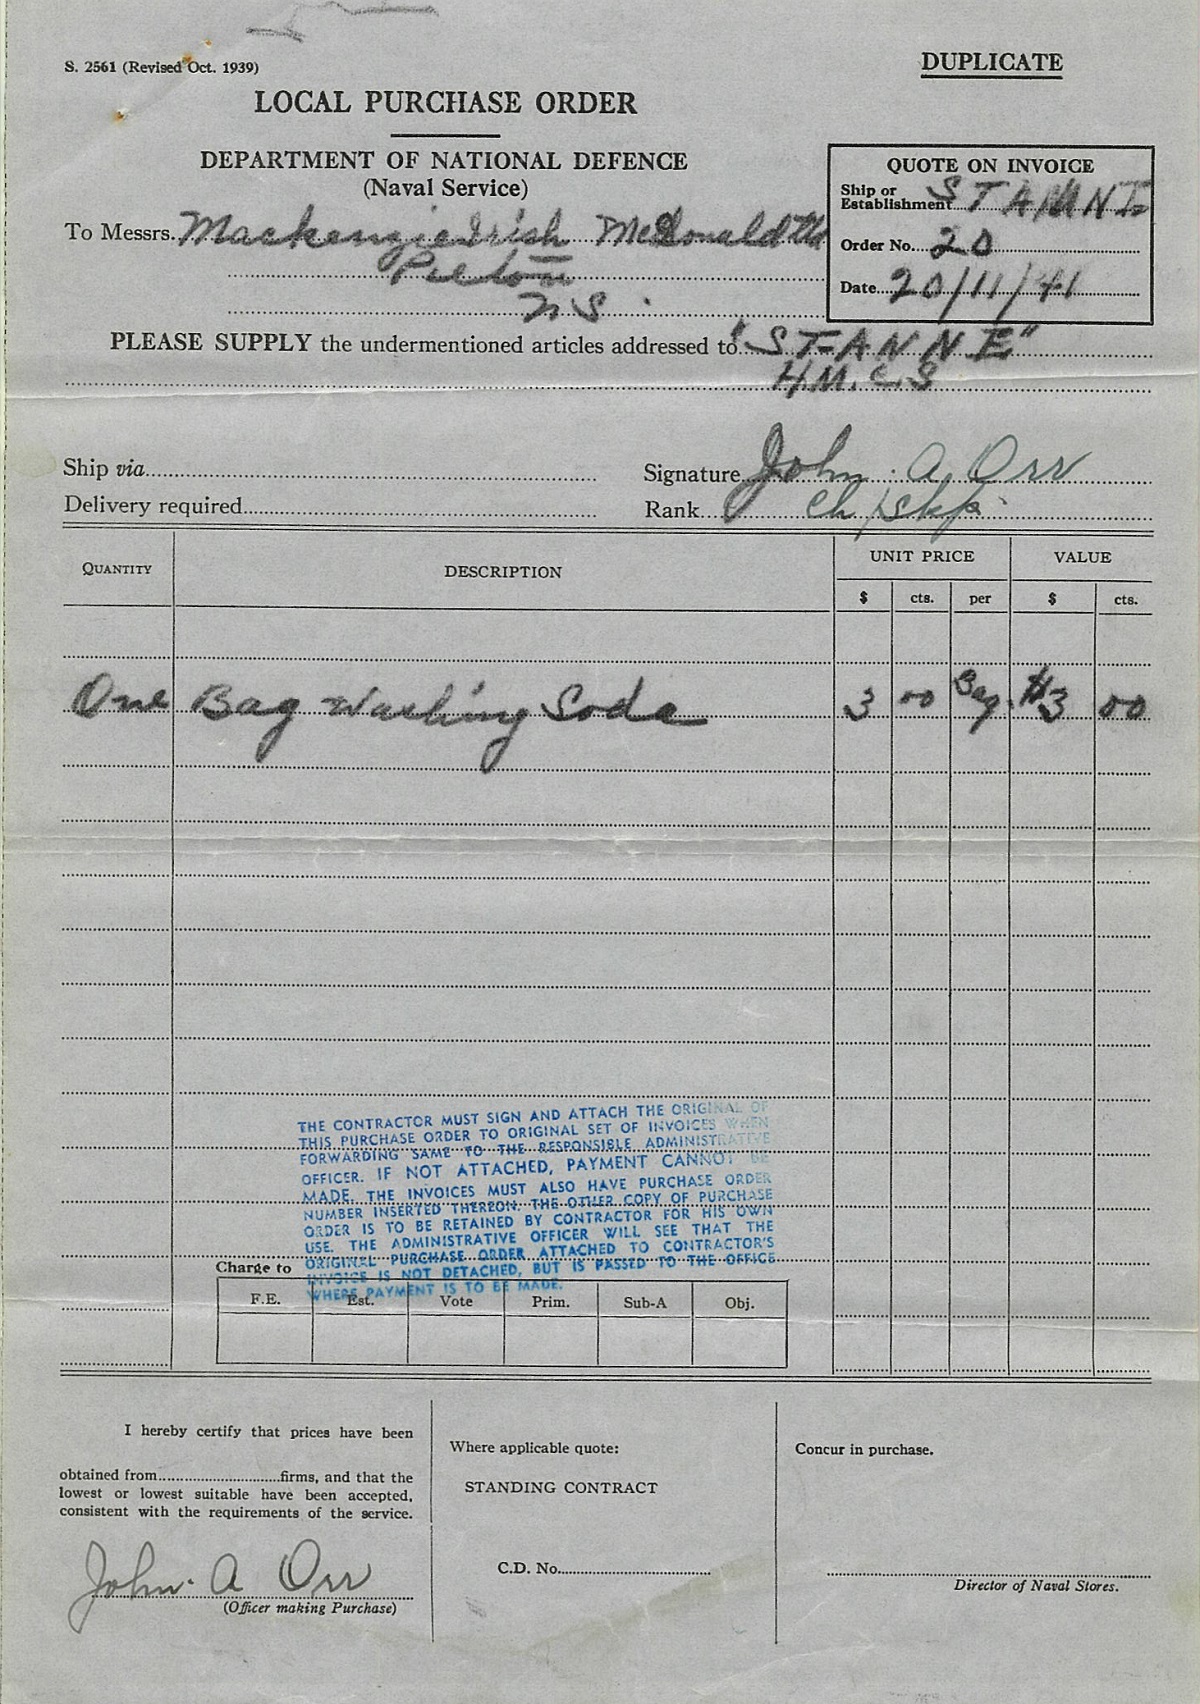 S. 2561 (Revised Oct. 1939)
DUPLICATE
LOCAL PURCHASE ORDER
DEPARTMENT OF NATIONAL DEFENCE
(Naval Service)
QUOTE ON INVOICE
Ship or Establishment STANNE
Order No. 20
Date 20/11/41
To Messrs. Mackenzie Irish McDonald
N S
PLEASE SUPPLY the undermentioned articles addressed to "STANNE"
H.M.C.S
Ship via
Signature John A Orr
Delivery required
Rank Ch/Skp.
QUANTITY DESCRIPTION UNIT PRICE VALUE
$ cts. per $ cts.
One Bag Washing Soda 3 00 Bag. $3 00
THE CONTRACTOR MUST SIGN AND ATTACH THE ORIGINAL OF
THIS PURCHASE ORDER TO ORIGINAL SET OF INVOICES WHEN
FORWARDING SAME TO THE RESPONSIBLE ADMINISTRATIVE
OFFICER. IF NOT ATTACHED, PAYMENT CANNOT BE
MADE. THE INVOICES MUST ALSO HAVE PURCHASE ORDER
NUMBER INSERTED THEREON. THE OTHER COPY OF PURCHASE
ORDER IS TO BE RETAINED BY CONTRACTOR FOR HIS OWN
USE. THE ADMINISTRATIVE OFFICER WILL SEE THAT THE
ORIGINAL PURCHASE ORDER ATTACHED TO CONTRACTOR'S
INVOICE IS NOT DETACHED, BUT IS PASSED TO THE OFFICE
WHERE PAYMENT IS TO BE MADE.
Charge to
F.E. Est. Vote Prim. Sub-A Obj.
I hereby certify that prices have been
obtained from firms, and that the
lowest or lowest suitable have been accepted,
consistent with the requirements of the service.
John A Orr
(Officer making Purchase)
Where applicable quote:
STANDING CONTRACT
C.D. No.
Concur in purchase.
Director of Naval Stores.